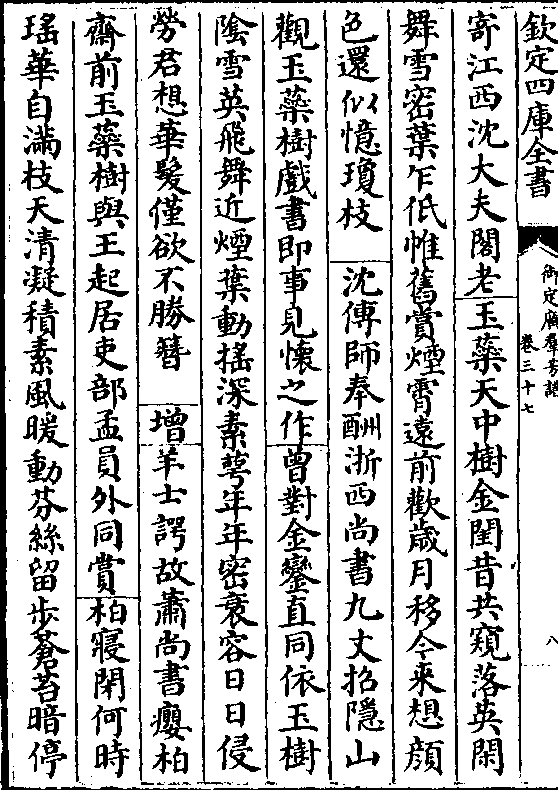 欽定四庫全書
御定廣羣芳譜
卷三十七
八
寄江西沈大夫閣老玉蘂天中樹金閨昔共窺落英閑
舞雪密葉乍低帷舊賞煙霄遠前歡歲月移今來想顔
色還似憶瓊枝沈傳師奉酬浙西尚書九丈招隱山
觀玉蘂樹戲書即事見懷之作曾對金鑾直同依玉樹
陰雪英飛舞近煙葉動搖深素萼年年密衰容日日侵
勞君想華髮僅欲不勝簪增羊士諤故蕭尚書癭柏
齋前玉蘂樹與王起居吏部孟員外同賞柏寢閉何時
瑤華自滿枝天清凝積素風暖動芬絲留步蒼苔暗停